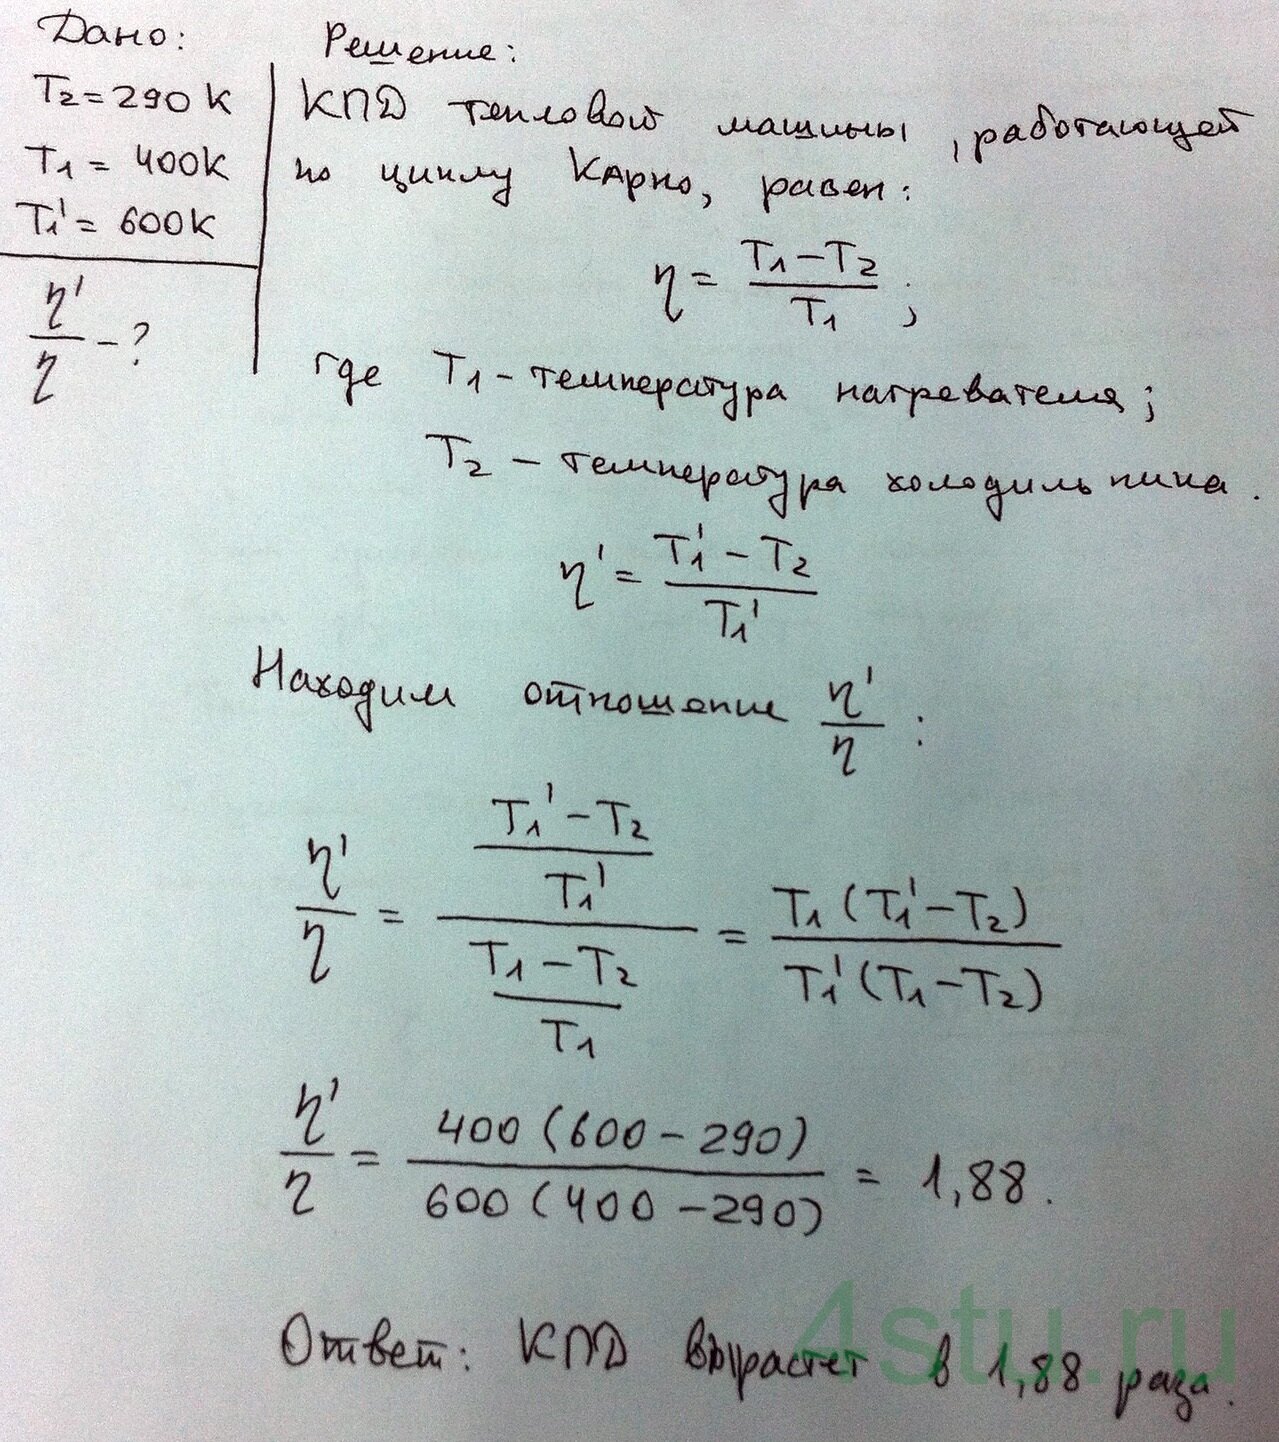 Дано:
T₂ = 290 К
T₁ = 400 К
T₁' = 600 К
η'/η - ?
Решение:
КПД тепловой машины, работающей
по циклу Карно, равен:
η = (T₁ - T₂)/T₁ ;
где T₁ - температура нагревателя;
T₂ - температура холодильника.
η' = (T₁' - T₂)/T₁'
Находим отношение η'/η :
η'/η = ((T₁' - T₂)/T₁')/((T₁ - T₂)/T₁) = T₁(T₁' - T₂)/T₁'(T₁ - T₂)
η'/η = 400(600 - 290)/600(400 - 290) = 1,88.
Ответ: КПД вырастет в 1,88 раза.
4stu.ru